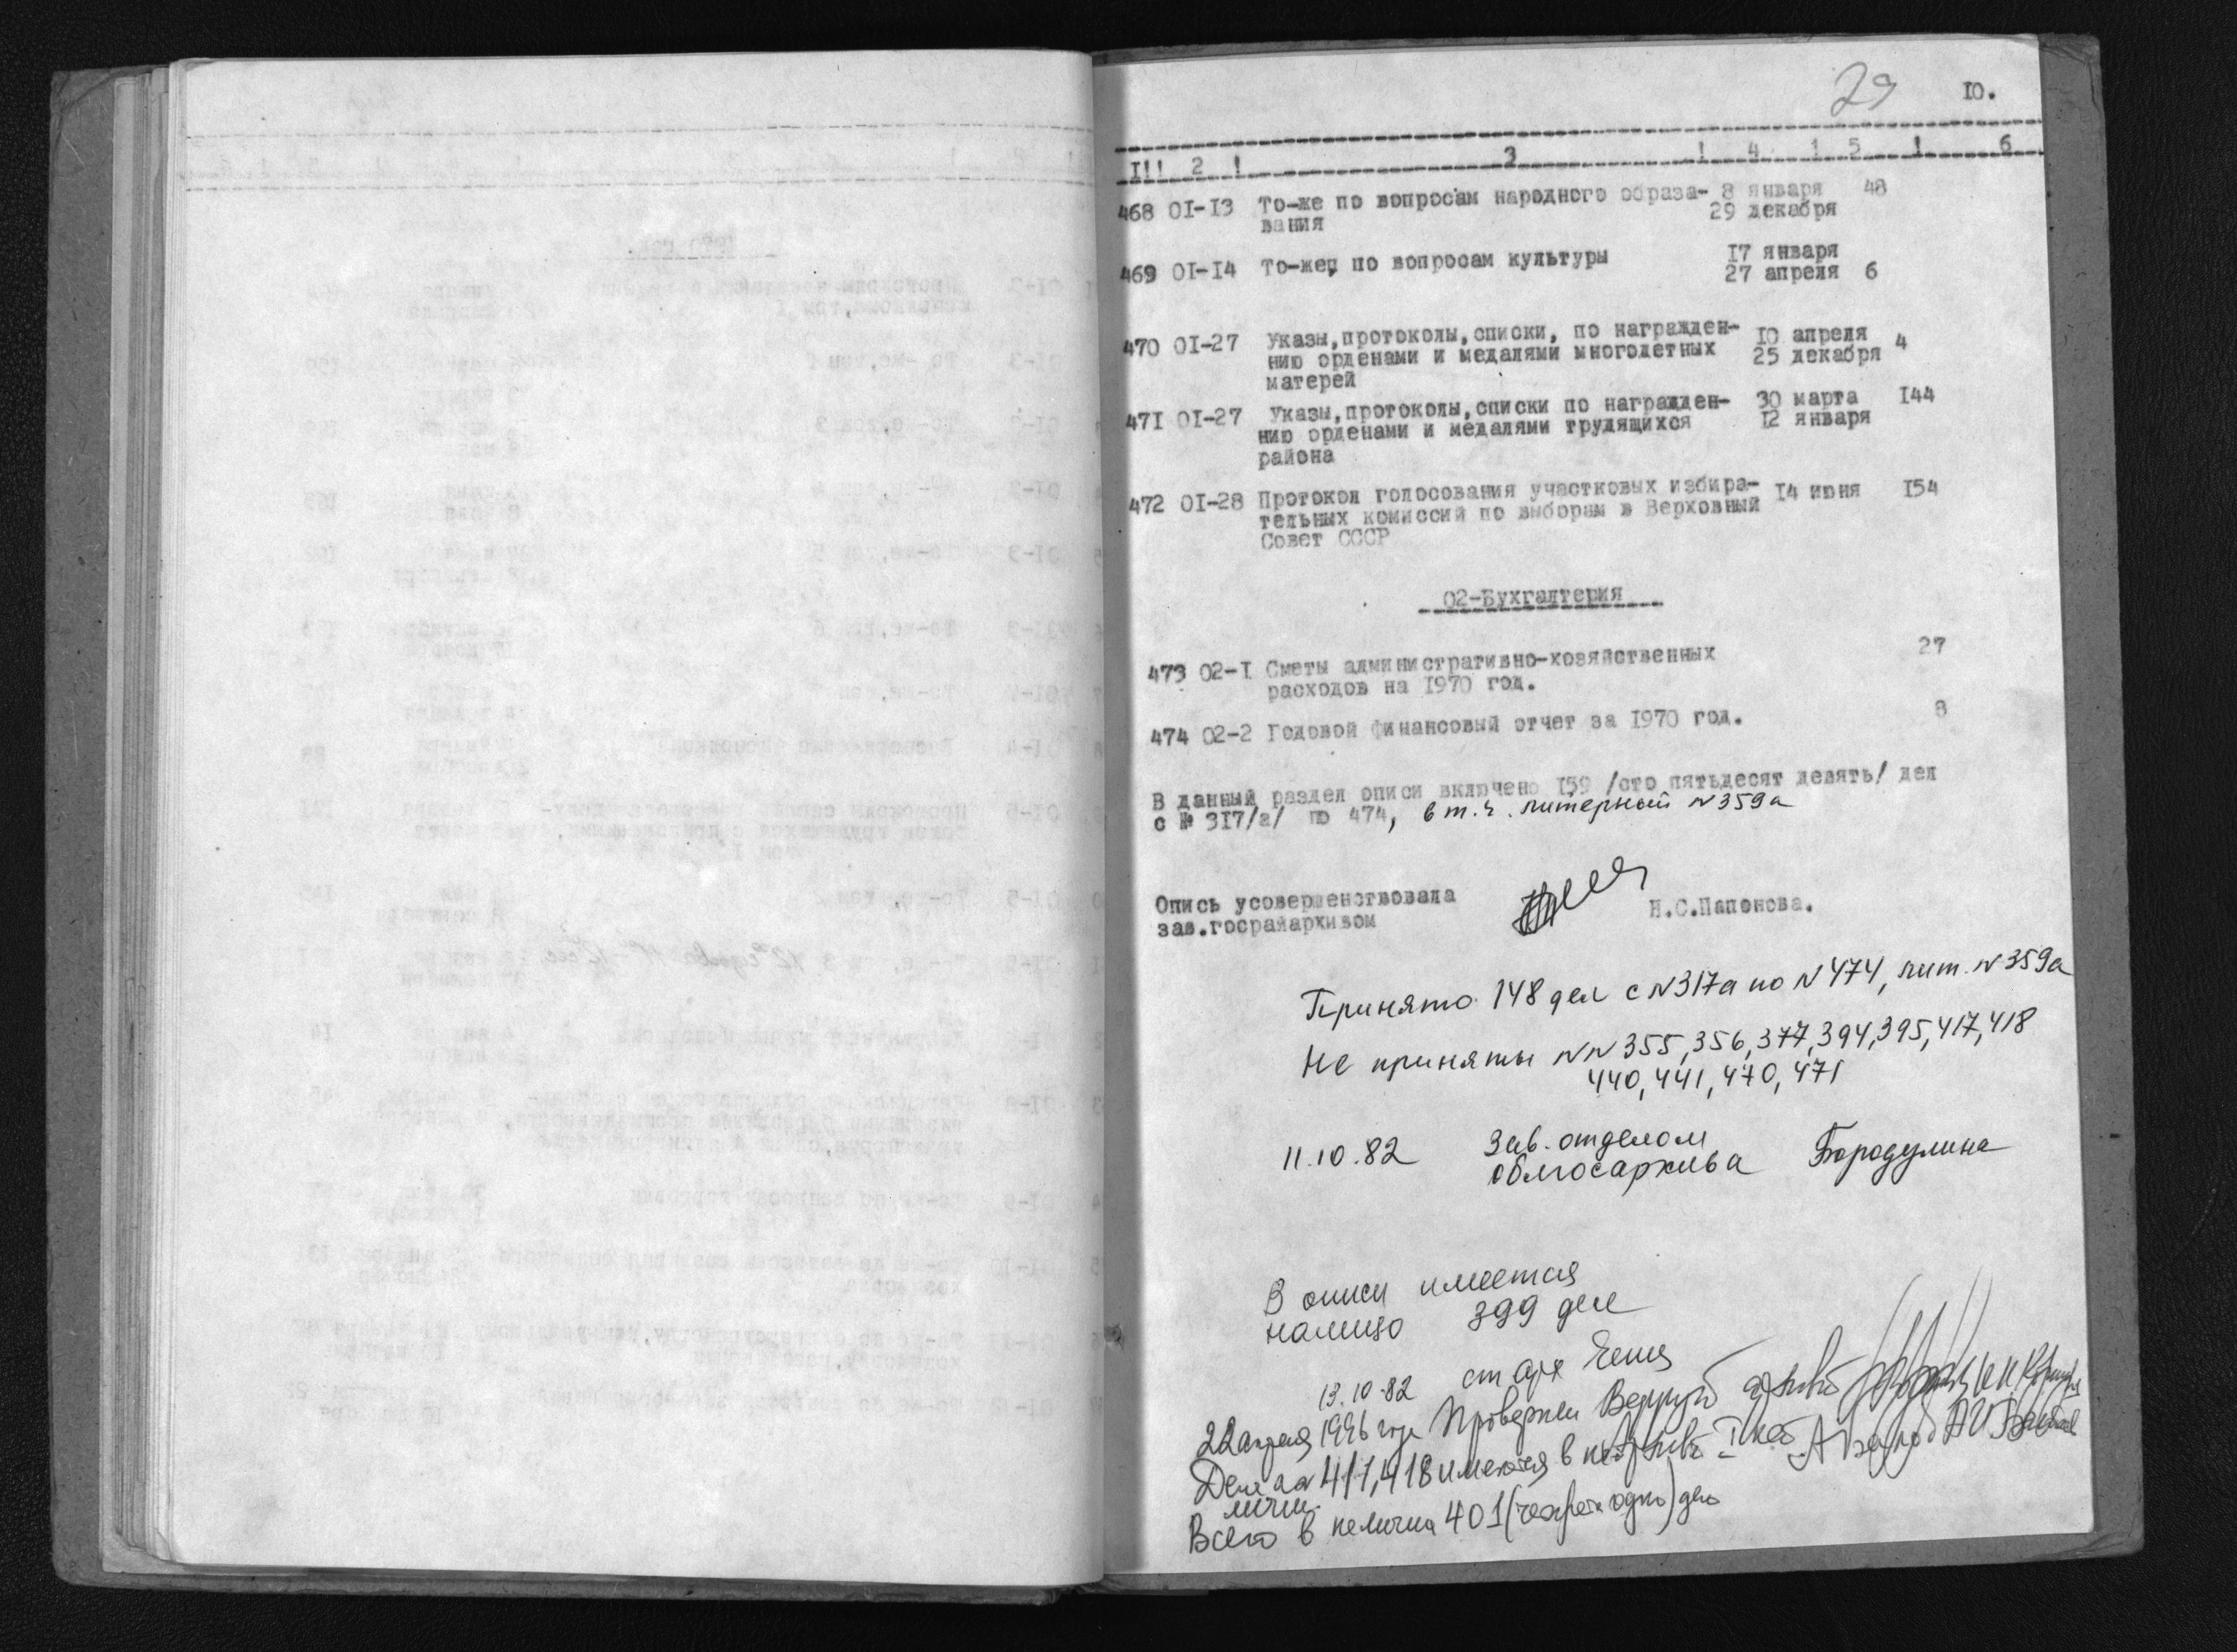 29
10.
I!! 2 ! 3 ! 4 ! 5 ! 6
468 01-13 То-же по вопросам народного образа- 8 января 48
вания 29 декабря
469 01-14 То-же по вопросам культуры 17 января
27 апреля 6
470 01-27 Указы,протоколы,списки, по награжден- 10 апреля 4
нию орденами и медалями многодетных 25 декабря
матерей
471 01-27 Указы,протоколы,списки по награжден- 30 марта 144
нию орденами и медалями трудящихся 12 января
района
472 01-28 Протокол голосования участковых избира- 14 июня 154
тельных комиссий по выборам в Верховный
Совет СССР
02-Бухгалтерия
473 02-1 Сметы административно-хозяйственных 27
расходов на 1970 год.
474 02-2 Годовой финансовый отчет за 1970 год. 8
В данный раздел описи включено 159 /сто пятьдесят девять/ дел
с № 317/а/ по 474, в т.ч. литерный N359а
Опись усовершенствовала
зав.госрайархивом Н.С.Папонова.
Принято 148 дел с N317а по N474, лит. N359а
Не приняты NN 355,356,377,394,395,417,418
440,441,470,471
11.10.82 Зав. отделом
облгосархива Бородулина
В описи имеется
налицо 399 дел
13.10.82 ст арх
22 апреля 1996 года
Дела 417,418 имеются в
личии.
Всего в наличии 401 (четыреста одно) дело